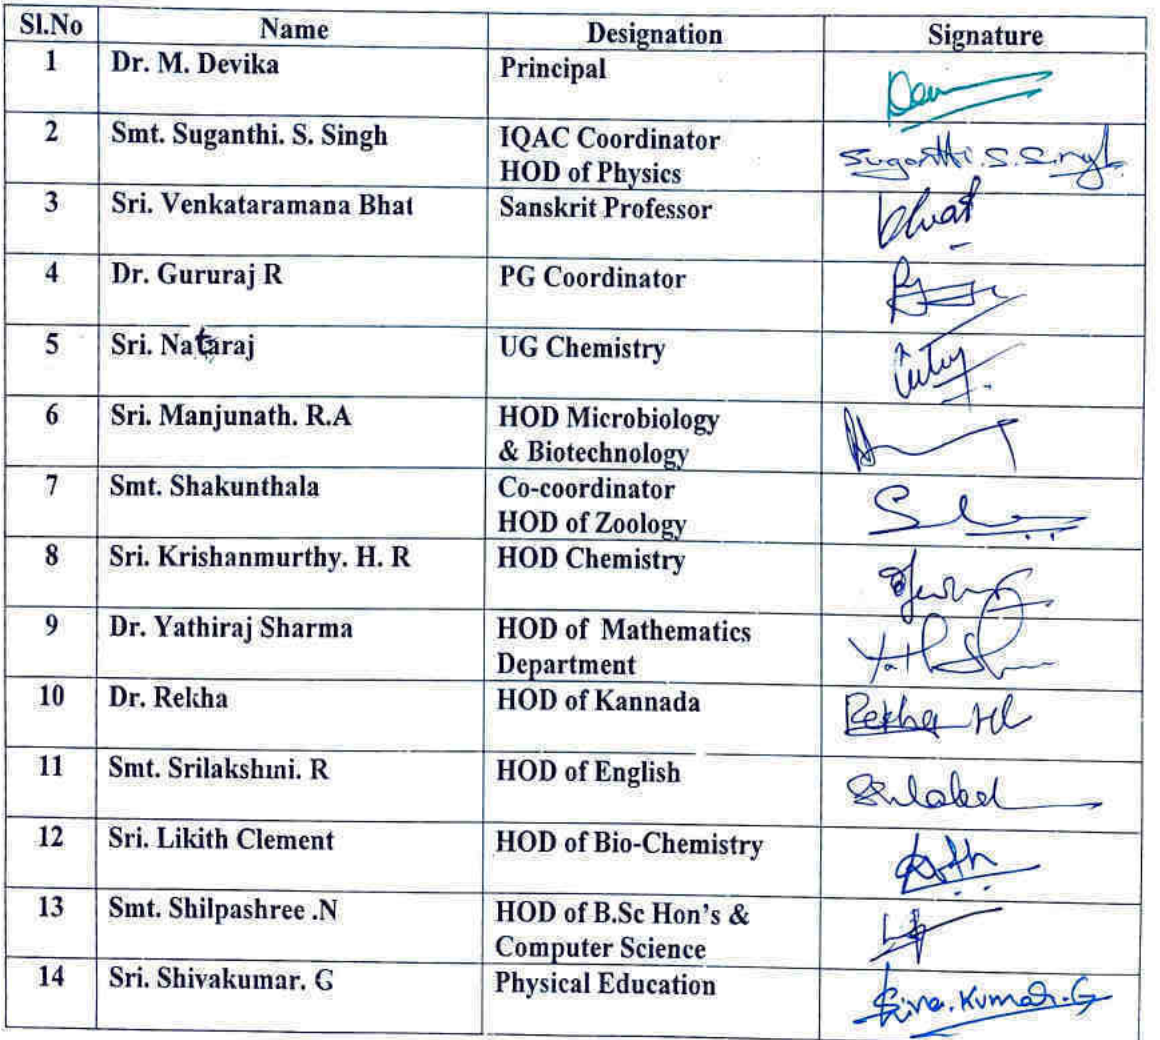 Sl.No Name Designation Signature
1 Dr. M. Devika Principal
2 Smt. Suganthi. S. Singh IQAC Coordinator Suganthi.S.Singh
HOD of Physics
3 Sri. Venkataramana Bhat Sanskrit Professor Bhat
4 Dr. Gururaj R PG Coordinator
5 Sri. Nataraj UG Chemistry
6 Sri. Manjunath. R.A HOD Microbiology
& Biotechnology
7 Smt. Shakunthala Co-coordinator
HOD of Zoology
8 Sri. Krishanmurthy. H. R HOD Chemistry
9 Dr. Yathiraj Sharma HOD of Mathematics
Department
10 Dr. Rekha HOD of Kannada Rekha
11 Smt. Srilakshmi. R HOD of English
12 Sri. Likith Clement HOD of Bio-Chemistry
13 Smt. Shilpashree .N HOD of B.Sc Hon's &
Computer Science
14 Sri. Shivakumar. G Physical Education Siva.Kumar.G